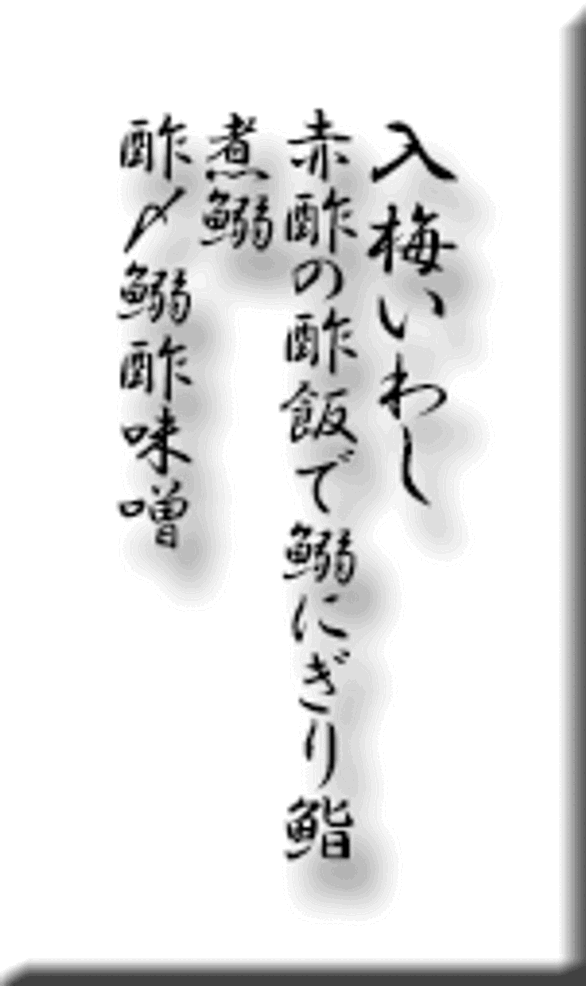 入梅いわし
赤酢の酢飯で鰯にぎり鮨
煮鰯
酢〆鰯酢味噌